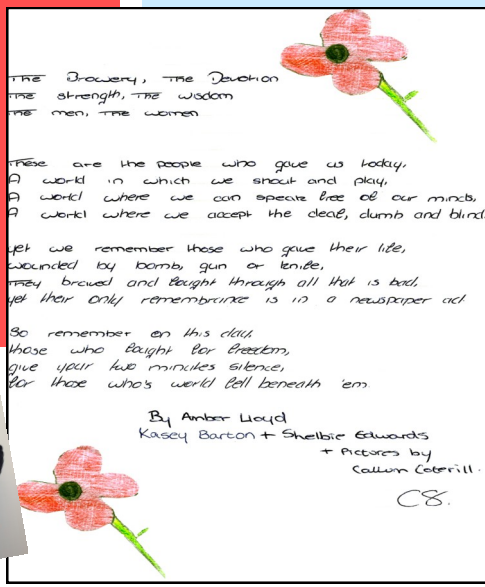 The Bravery, The Devotion
The strength, The wisdom
The men, The women
These are the people who gave us today,
A world in which we shout and play,
A world where we can speak free of our minds,
A world where we accept the deaf, dumb and blind.
yet we remember those who gave their life,
wounded by bomb, gun or knife,
They braved and fought through all that is bad,
yet their only remembrance is in a newspaper ad
So remember on this day,
those who fought for freedom,
give your two minutes silence,
for those who's world fell beneath 'em
By Amber Lloyd
Kasey Barton + Shelbie Edwards
+ Pictures by
Callum Coterill.
C8.